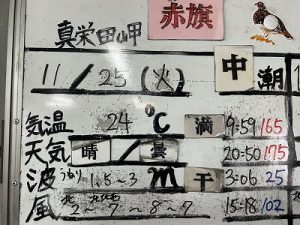 赤旗
真栄田岬
11/25(火) 中潮
気温 24℃ 満 9:59 165
天気 晴/曇 20:50 175
波 うねり 1.5~3m 干 3:06 25
風 北2~7~北北西8~7 15:18 102